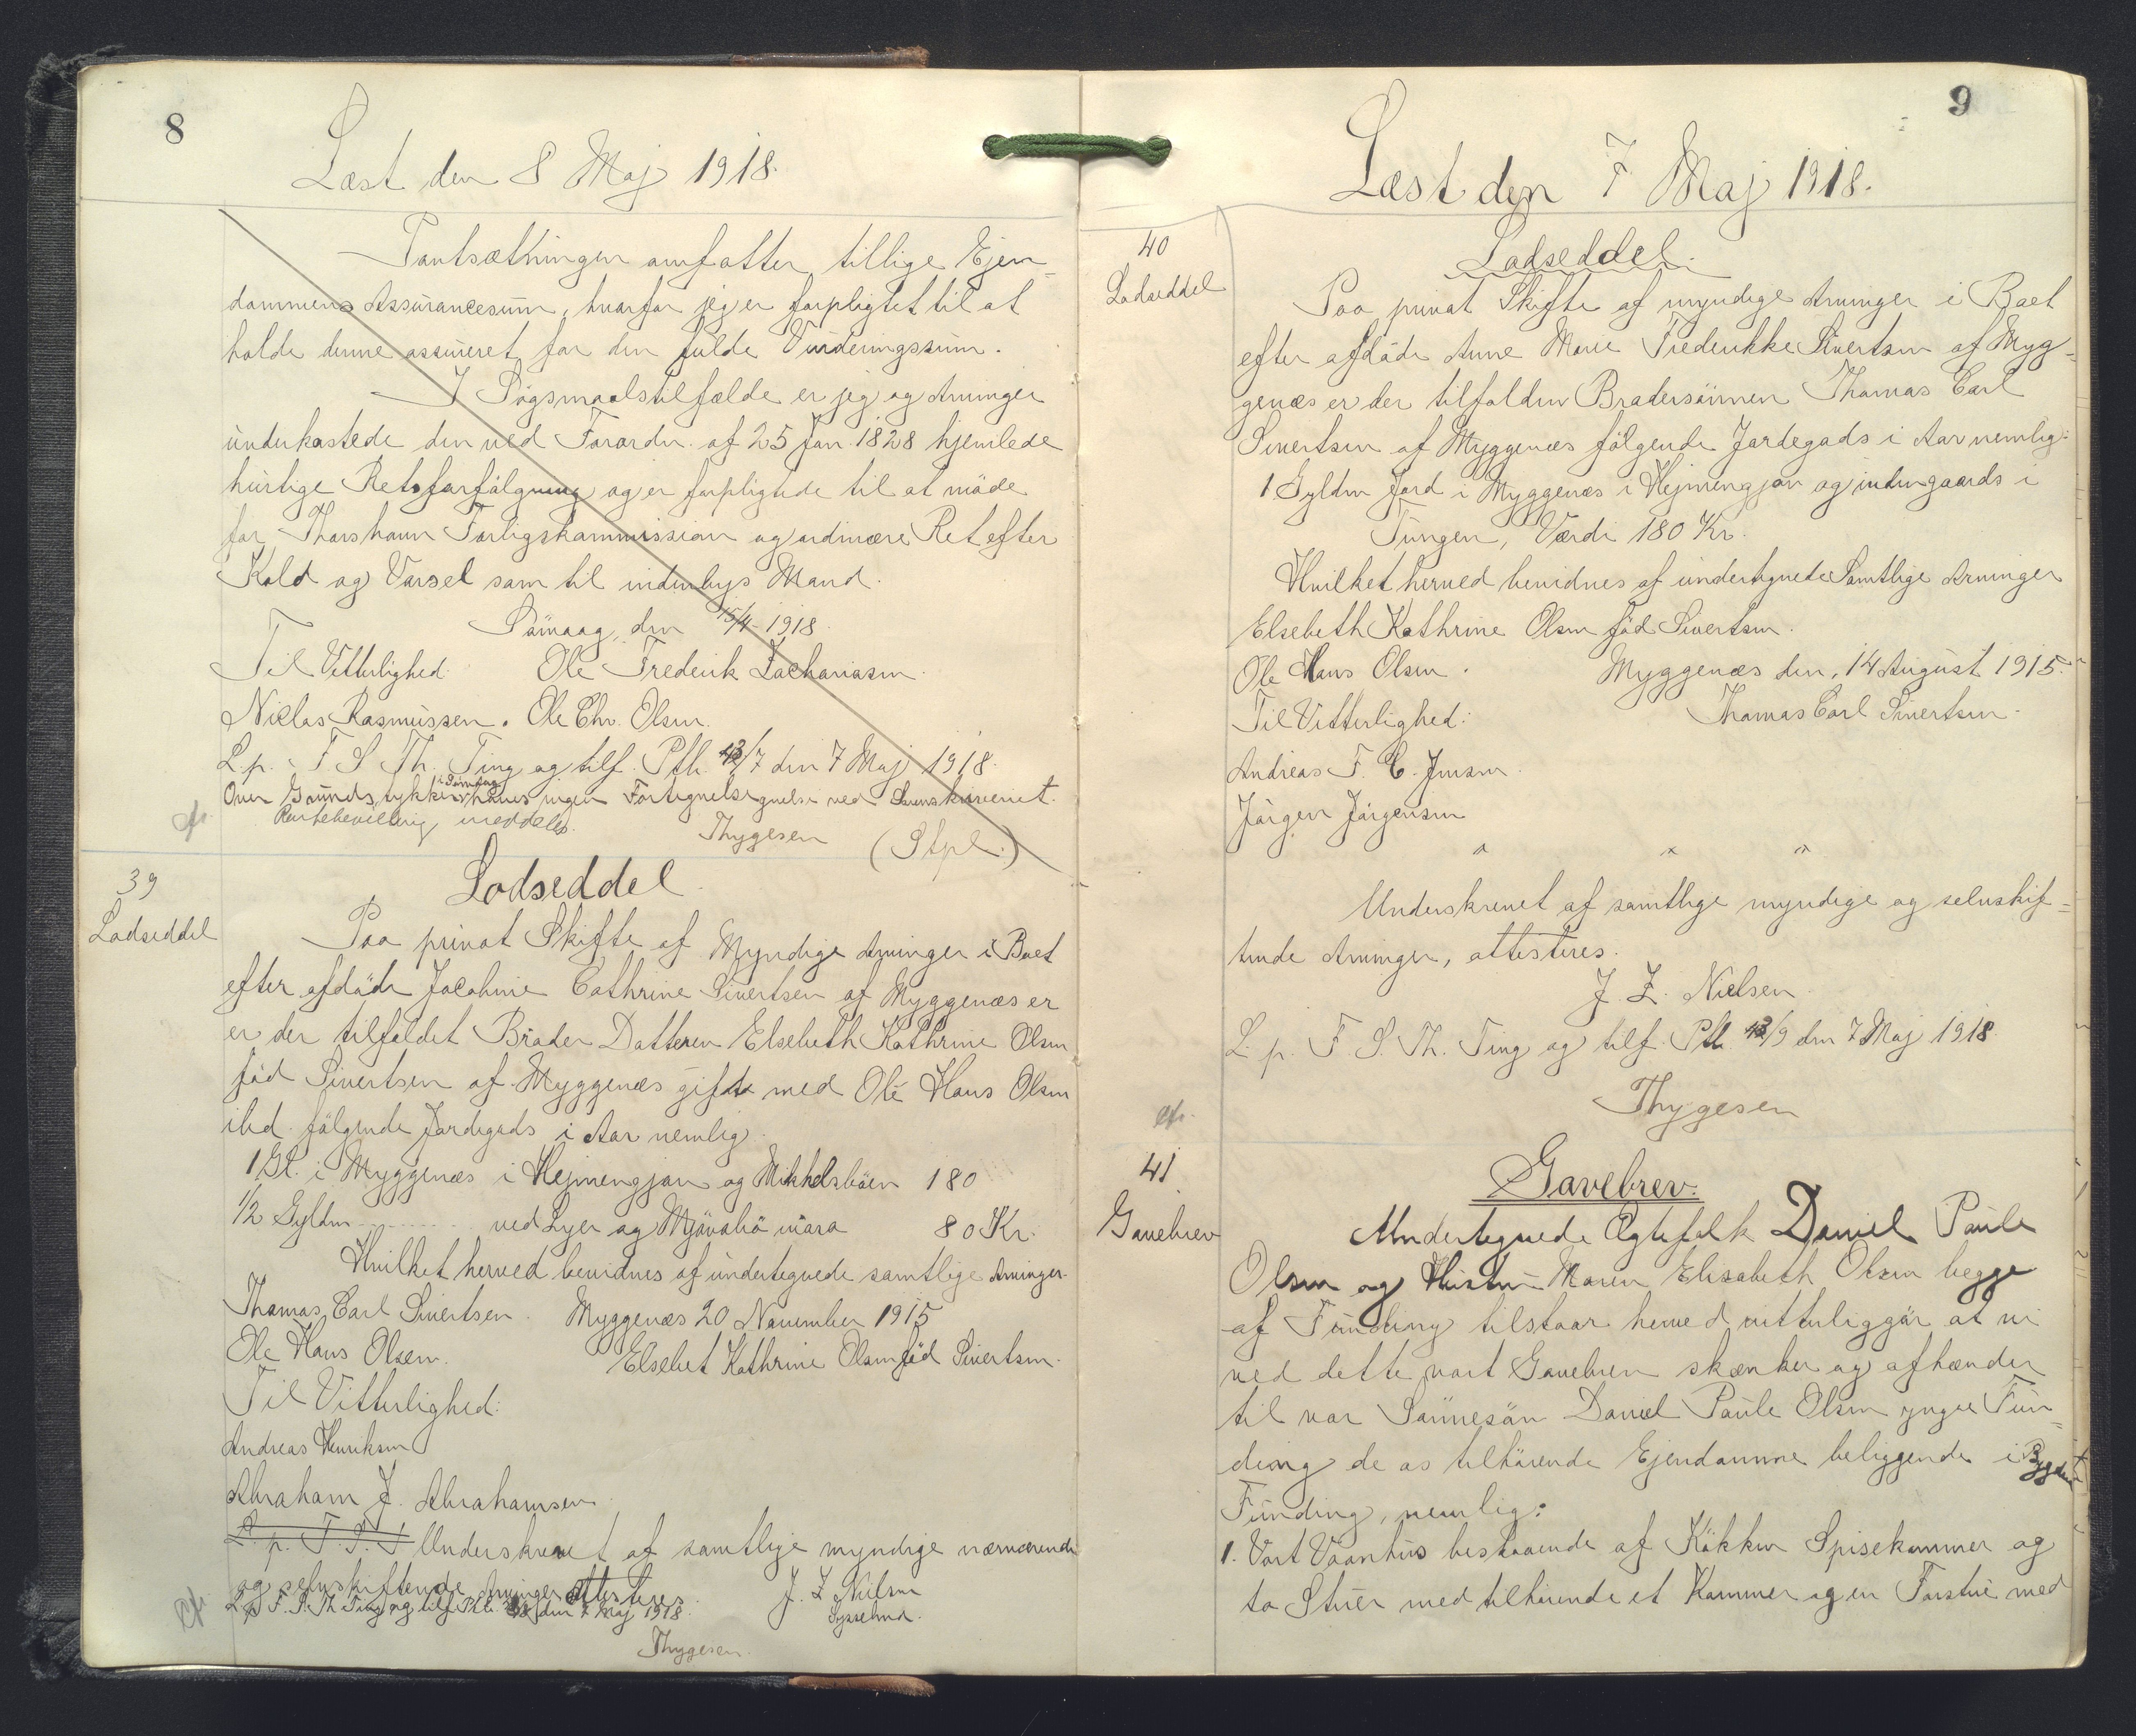 8
Læst den 8 Maj 1918.
Pantsætningen omfatter tillige Ejen-
dommens Assurancesum, hvorfor jeg er forpligtet til at
holde denne assureret for den fulde Vurderingssum.
I Søgsmaalstilfælde er jeg og Arvinger
underkastede den ved Forordn. af 25 Jan. 1828 hjemlede
hurtige Retsforfølgning og er forpligtede til at møde
for Thorshavn Forligskommission og ordinære Ret efter
Kald og Varsel som til indenbys Mand.
den 15/4 - 1918.
Til Vitterlighed: Ole Frederik Zachariasen.
Niclas Rasmussen. Ole Chr. Olsen.
L. p. F S Th. Ting og tilf. Ptb. 43/7 den 7 Maj 1918.
Over Grundstykker haves ingen ved Sorenskriveriet.
meddeles.
Thygesen (Stpl.)
cfr.
39
Lodseddel
Lodseddel.
Paa privat Skifte af Myndige Arvinger i Boet
efter afdöde Jacobine Cathrine Sivertsen af Myggenæs er
er der tilfaldet Broder Datteren Elsebeth Kathrine Olsen
föd Sivertsen af Myggenæs gift med Ole Hans Olsen
ibd. fölgende Jordegods i Aar nemlig.
1 Gl. i Myggenæs i Hejmengjor og Mikkelsböen 180
1/2 Gylden ved Lyer og 80 Kr.
Hvilket herved bevidnes af undertegnede samtlige Arvinger.
Thomas Carl Sivertsen. Myggenæs 20 November 1915
Ole Hans Olsen. Elsebet Kathrine Olsen föd Sivertsen.
Til Vitterlighed:
Andreas Henriksen
Abraham J. Abrahamsen.
L. p. F. S. T Underskrevet af samtlige myndige nærværende
og selvskiftende Arvinger attesteres. J. Z Nielsen
L. p F. S. Th Ting og tilf. Ptb. den 7 Maj 1918. Sysselmd.
Thygesen.
cfr.
9
Læst den 7 Maj 1918.
40
Lodseddel
Lodseddel.
Paa privat Skifte af myndige Arvinger i Boet
efter afdöde Anne Marie Frederikke Sivertsen af Myg-
genæs er der tilfalden Brodersönnen Thomas Carl
Sivertsen af Myggenæs fölgende Jordegods i Aar nemlig:
1 Gylden Jord i Myggenæs i Hejmengjor og indengaards i
Tungen, Værdi 180 Kr.
Hvilket herved bevidnes af undertegnede Samtlige Arvinger
Elsebeth Kathrine Olsen föd Sivertsen.
Ole Hans Olsen. Myggenæs den, 14 August 1915.
Til Vitterlighed: Thomas Carl Sivertsen.
Andreas F. C. Jensen.
Jörgen Jörgensen
" " "
Underskrevet af samtlige myndige og selvskif-
tende Arvinger, attesteres.
J. Z. Nielsen
L. p. F. S. Th. Ting og tilf. Ptb. 43/9 den 7 Maj 1918.
Thygesen
cfr.
41
Gavebrev
Gavebrev.
Undertegnede Ægtefolk Daniel Paule
Olsen og Hustru Maren Elisabeth Olsen begge
af Funding tilstaar herved vitterliggör at vi
ved dette vort Gavebrev skænker og afhænder
til vor Sönnesön Daniel Paule Olsen yngre Fun-
ding de os tilhörende Ejendomme beliggende i Bygden
Funding, nemlig:
1. Vort Vaanhus bestaaende af Kökken Spisekammer og
to Stuer med tilhörende et Kammer og en Forstue med